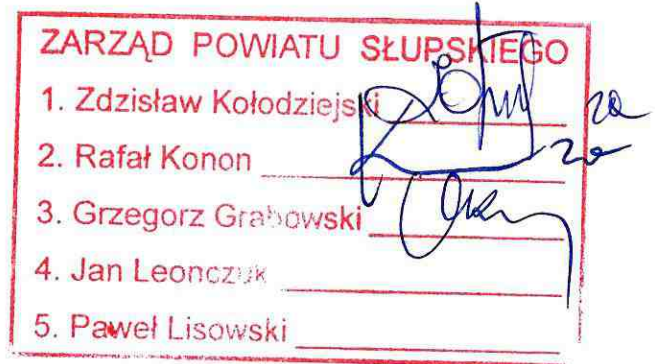 ZARZĄD POWIATU SŁUPSKIEGO
1. Zdzisław Kołodziejski za
2. Rafał Konon za
3. Grzegorz Grabowski
4. Jan Leonczuk
5. Paweł Lisowski